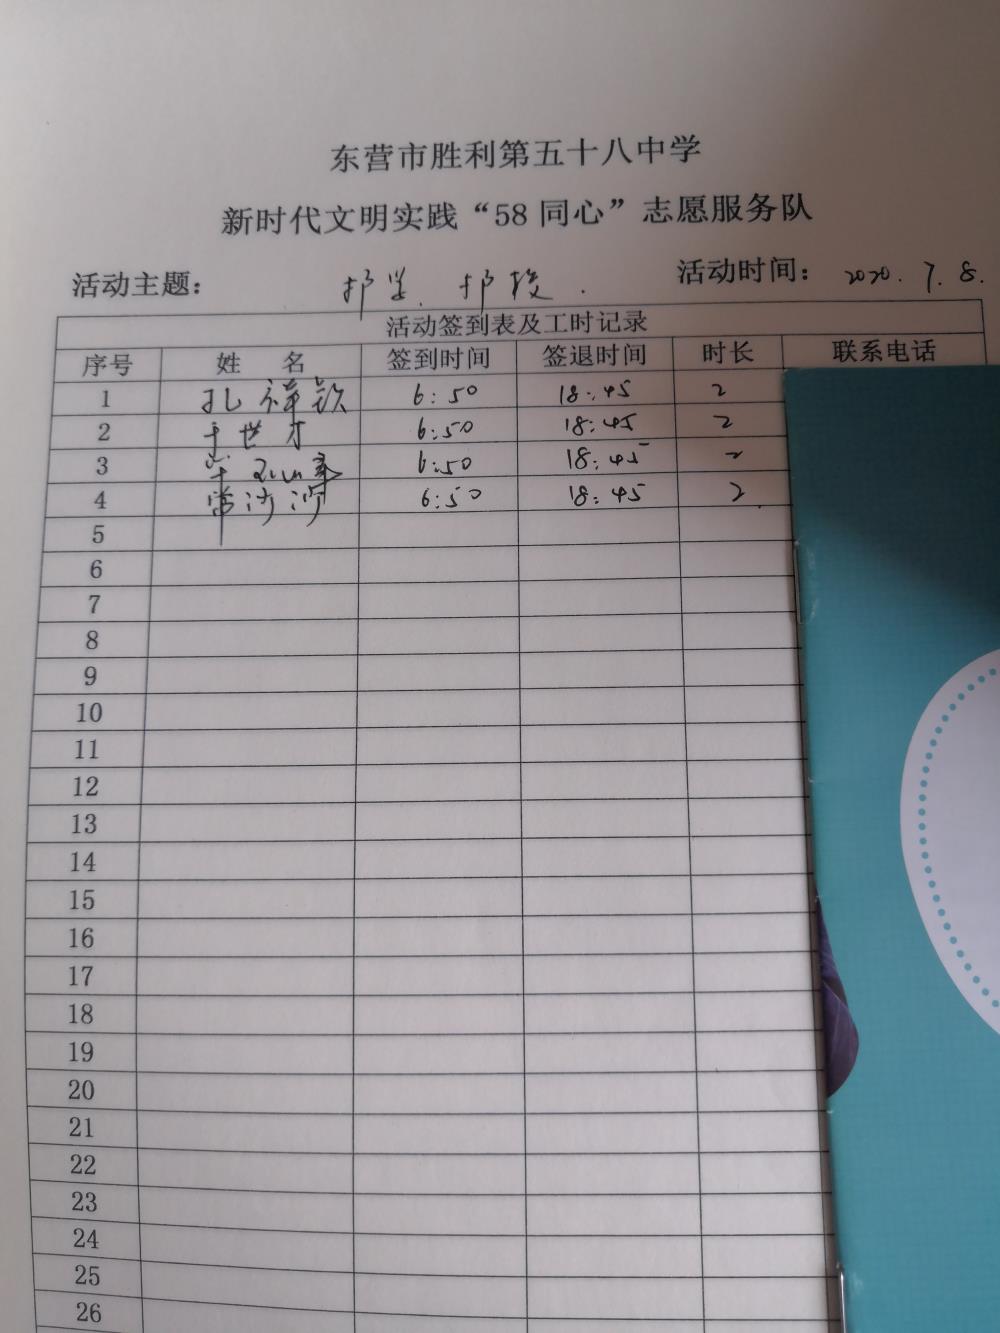 东营市胜利第五十八中学
新时代文明实践“58同心”志愿服务队
活动主题： 护学．护校． 活动时间：2020.7.8.
活动签到表及工时记录
序号 姓 名 签到时间 签退时间 时长 联系电话
1 孔祥钦 6:50 18:45 2
2 世才 6:50 18:45 2
3 6:50 18:45 2
4 常沙沙 6:50 18:45 2
5
6
7
8
9
10
11
12
13
14
15
16
17
18
19
20
21
22
23
24
25
26